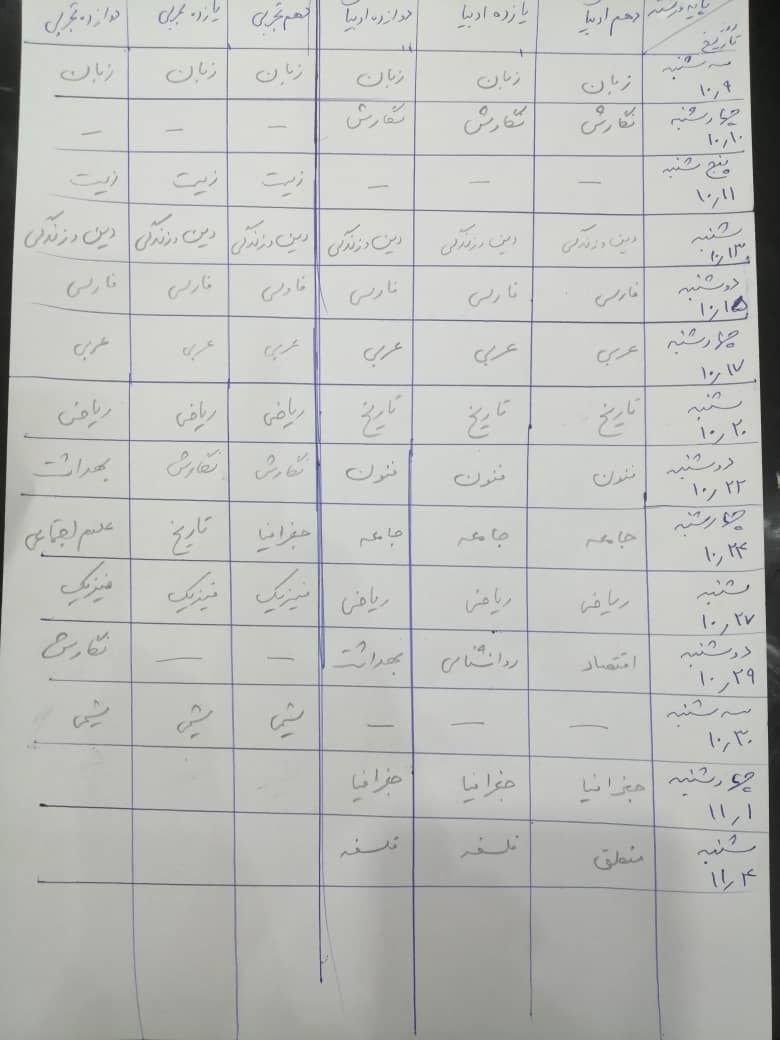 پایه و رشته دهم ادبیات یازده ادبیات دوازده ادبیات دهم تجربی یازده تجربی دوازده تجربی
تاریخ
سه شنبه ۱۰٫۹ زبان زبان زبان زبان زبان زبان
چهارشنبه ۱۰٫۱۰ نگارش نگارش نگارش — — —
پنج شنبه ۱۰٫۱۱ — — — زیست زیست زیست
شنبه ۱۰٫۱۳ دین و زندگی دین و زندگی دین و زندگی دین و زندگی دین و زندگی دین و زندگی
دوشنبه ۱۰٫۱۵ فارسی فارسی فارسی فارسی فارسی فارسی
چهارشنبه ۱۰٫۱۷ عربی عربی عربی عربی عربی عربی
شنبه ۱۰٫۲۰ تاریخ تاریخ تاریخ ریاضی ریاضی ریاضی
دوشنبه ۱۰٫۲۲ فنون فنون فنون نگارش نگارش بهداشت
چهارشنبه ۱۰٫۲۴ جامعه جامعه جامعه جغرافیا تاریخ علوم اجتماعی
شنبه ۱۰٫۲۷ ریاضی ریاضی ریاضی فیزیک فیزیک فیزیک
دوشنبه ۱۰٫۲۹ اقتصاد روانشناسی بهداشت — — نگارش
سه شنبه ۱۰٫۳۰ — — — شیمی شیمی شیمی
چهارشنبه ۱۱٫۱ جغرافیا جغرافیا جغرافیا
شنبه ۱۱٫۴ منطق فلسفه فلسفه